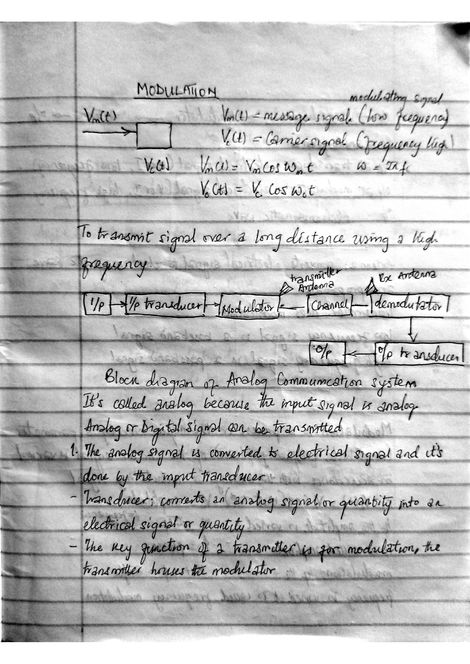 MODULATION
modulating signal
Vm(t)
Vm(t) = message signal (low frequency)
Vc(t) = Carrier signal (frequency high)
Vc(t)
Vm(t) = Vm Cos Wm t
W = 2πf
Vc(t) = Vc Cos Wc t
To transmit signal over a long distance using a high
frequency
transmitter
Antenna
Rx Antenna
I/p
I/p transducer
Modulator
Channel
demodulator
O/p
O/p transducer
Block diagram of Analog Communication system
It's called analog because the input signal is analog
Analog or Digital signal can be transmitted
1. The analog signal is converted to electrical signal and it's
done by the input transducer
- Transducer; converts an analog signal or quantity into an
electrical signal or quantity
- The key function of a transmitter is for modulation, the
transmitter houses the modulator